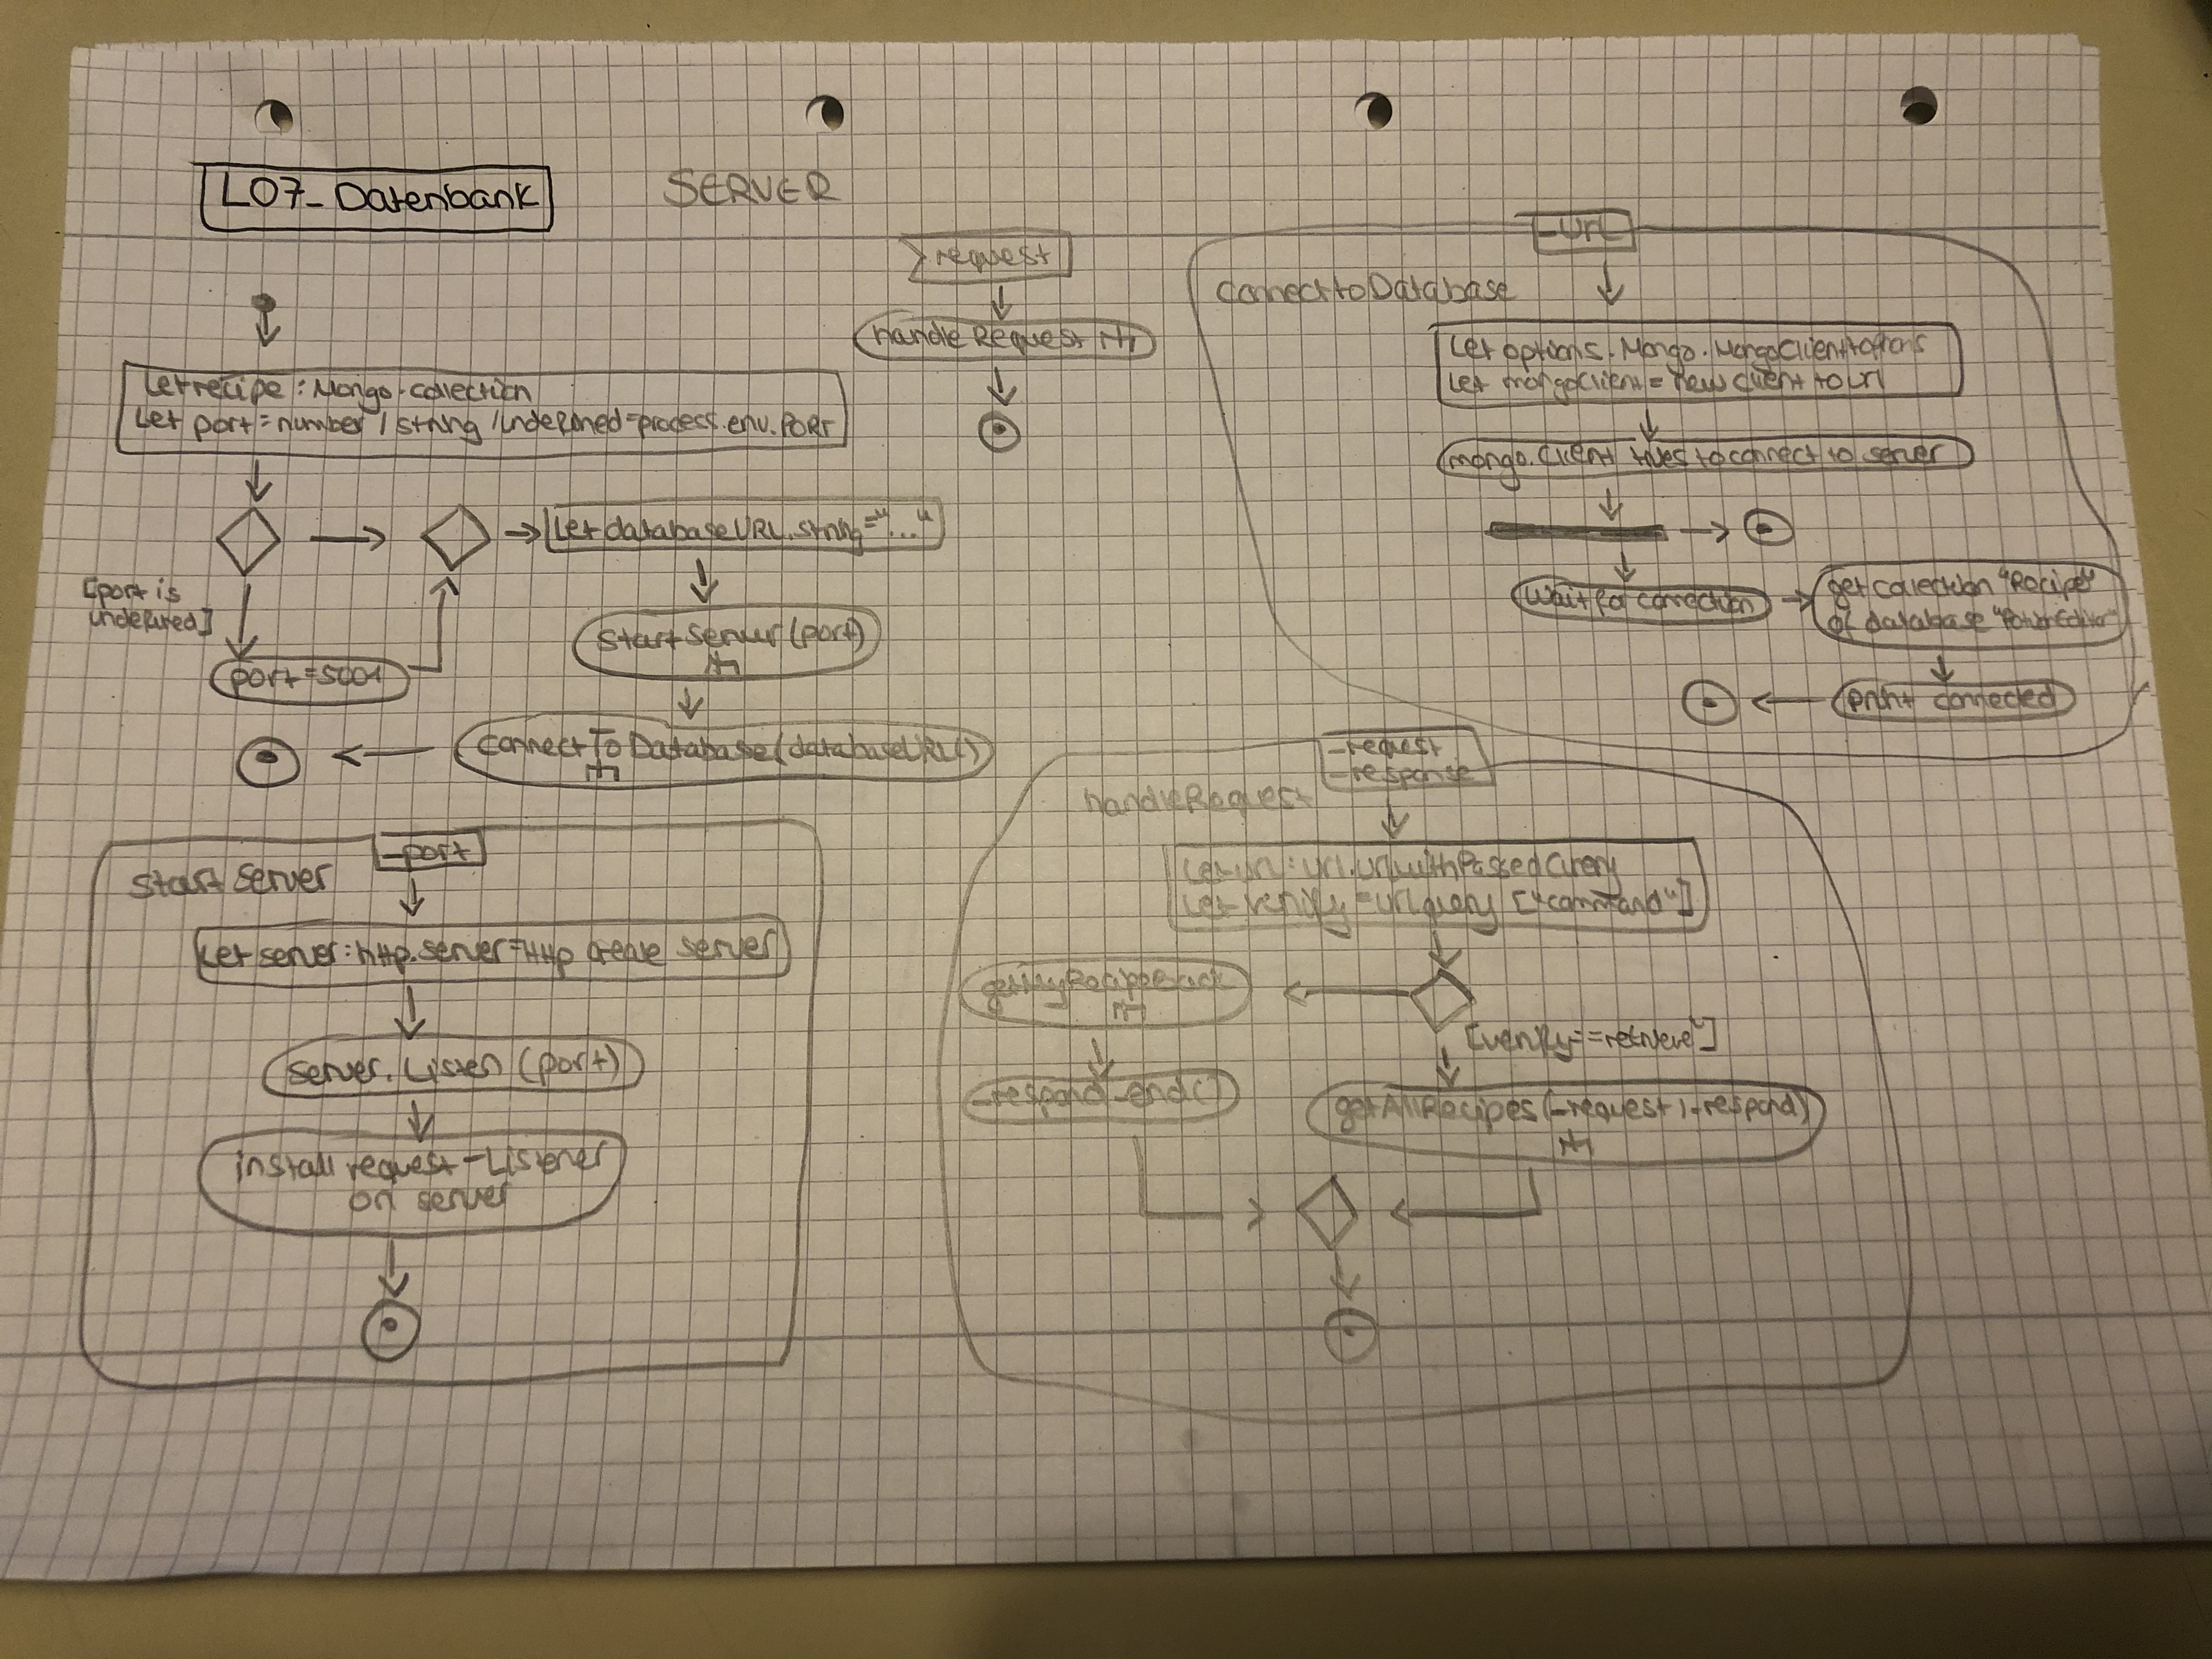 L07_Datenbank
SERVER
Let recipe : Mongo.collection
Let port = number / string / undefined = process.env.PORT
[port is
undefined]
port = 5001
Let databaseURL.string = "..."
StartServer (port)
connectToDatabase (databaseURL)
request
handleRequest
StartServer
_port
Let server : http.server = Http create server
Server.Listen (port)
install request-Listener
on server
connecttoDatabase
_url
Let options. Mongo. MongoClientoptions
Let mongoClient = new client to url
mongo.client tries to connect to server
wait for connection
get collection "Recipe"
of database
print connected
handleRequest
_request
_response
Let url : url.urlwithParsedQuery
= url.query ["command"]
_respond_end()
getAllRecipes (_request, _respond)